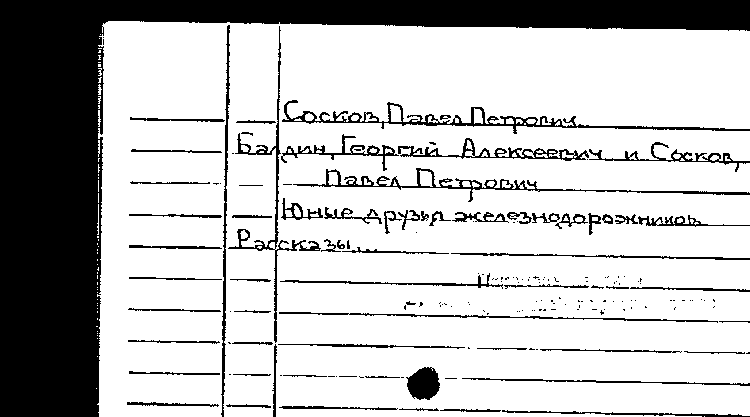 Сосков, Павел Петрович
Балдин, Георгий Алексеевич и Сосков,
Павел Петрович
Юные друзья железнодорожников
Рассказы...